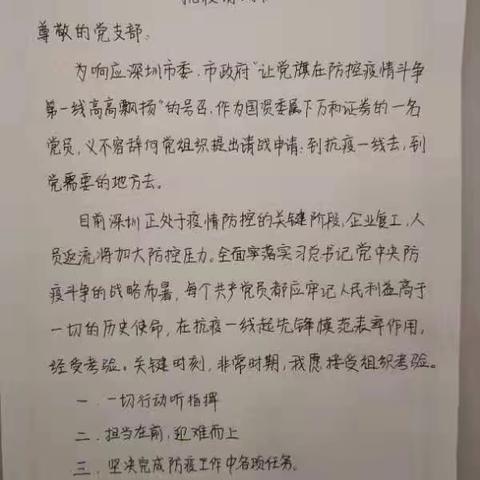 尊敬的党支部:
为响应深圳市委、市政府“让党旗在防控疫情斗争
第一线高高飘扬”的号召,作为国资委属下万和证券的一名
党员,义不容辞向党组织提出请战申请:到抗疫一线去,到
党需要的地方去。
目前深圳正处于疫情防控的关键阶段,企业复工,人
员返流将加大防控压力。全面落实习总书记党中央防
疫斗争的战略布署,每个共产党员都应牢记人民利益高于
一切的历史使命,在抗疫一线起先锋模范表率作用,
经受考验。关键时刻,非常时期,我愿接受组织考验。
一.一切行动听指挥
二.担当在前,迎难而上
三.坚决完成防疫工作中各项任务。